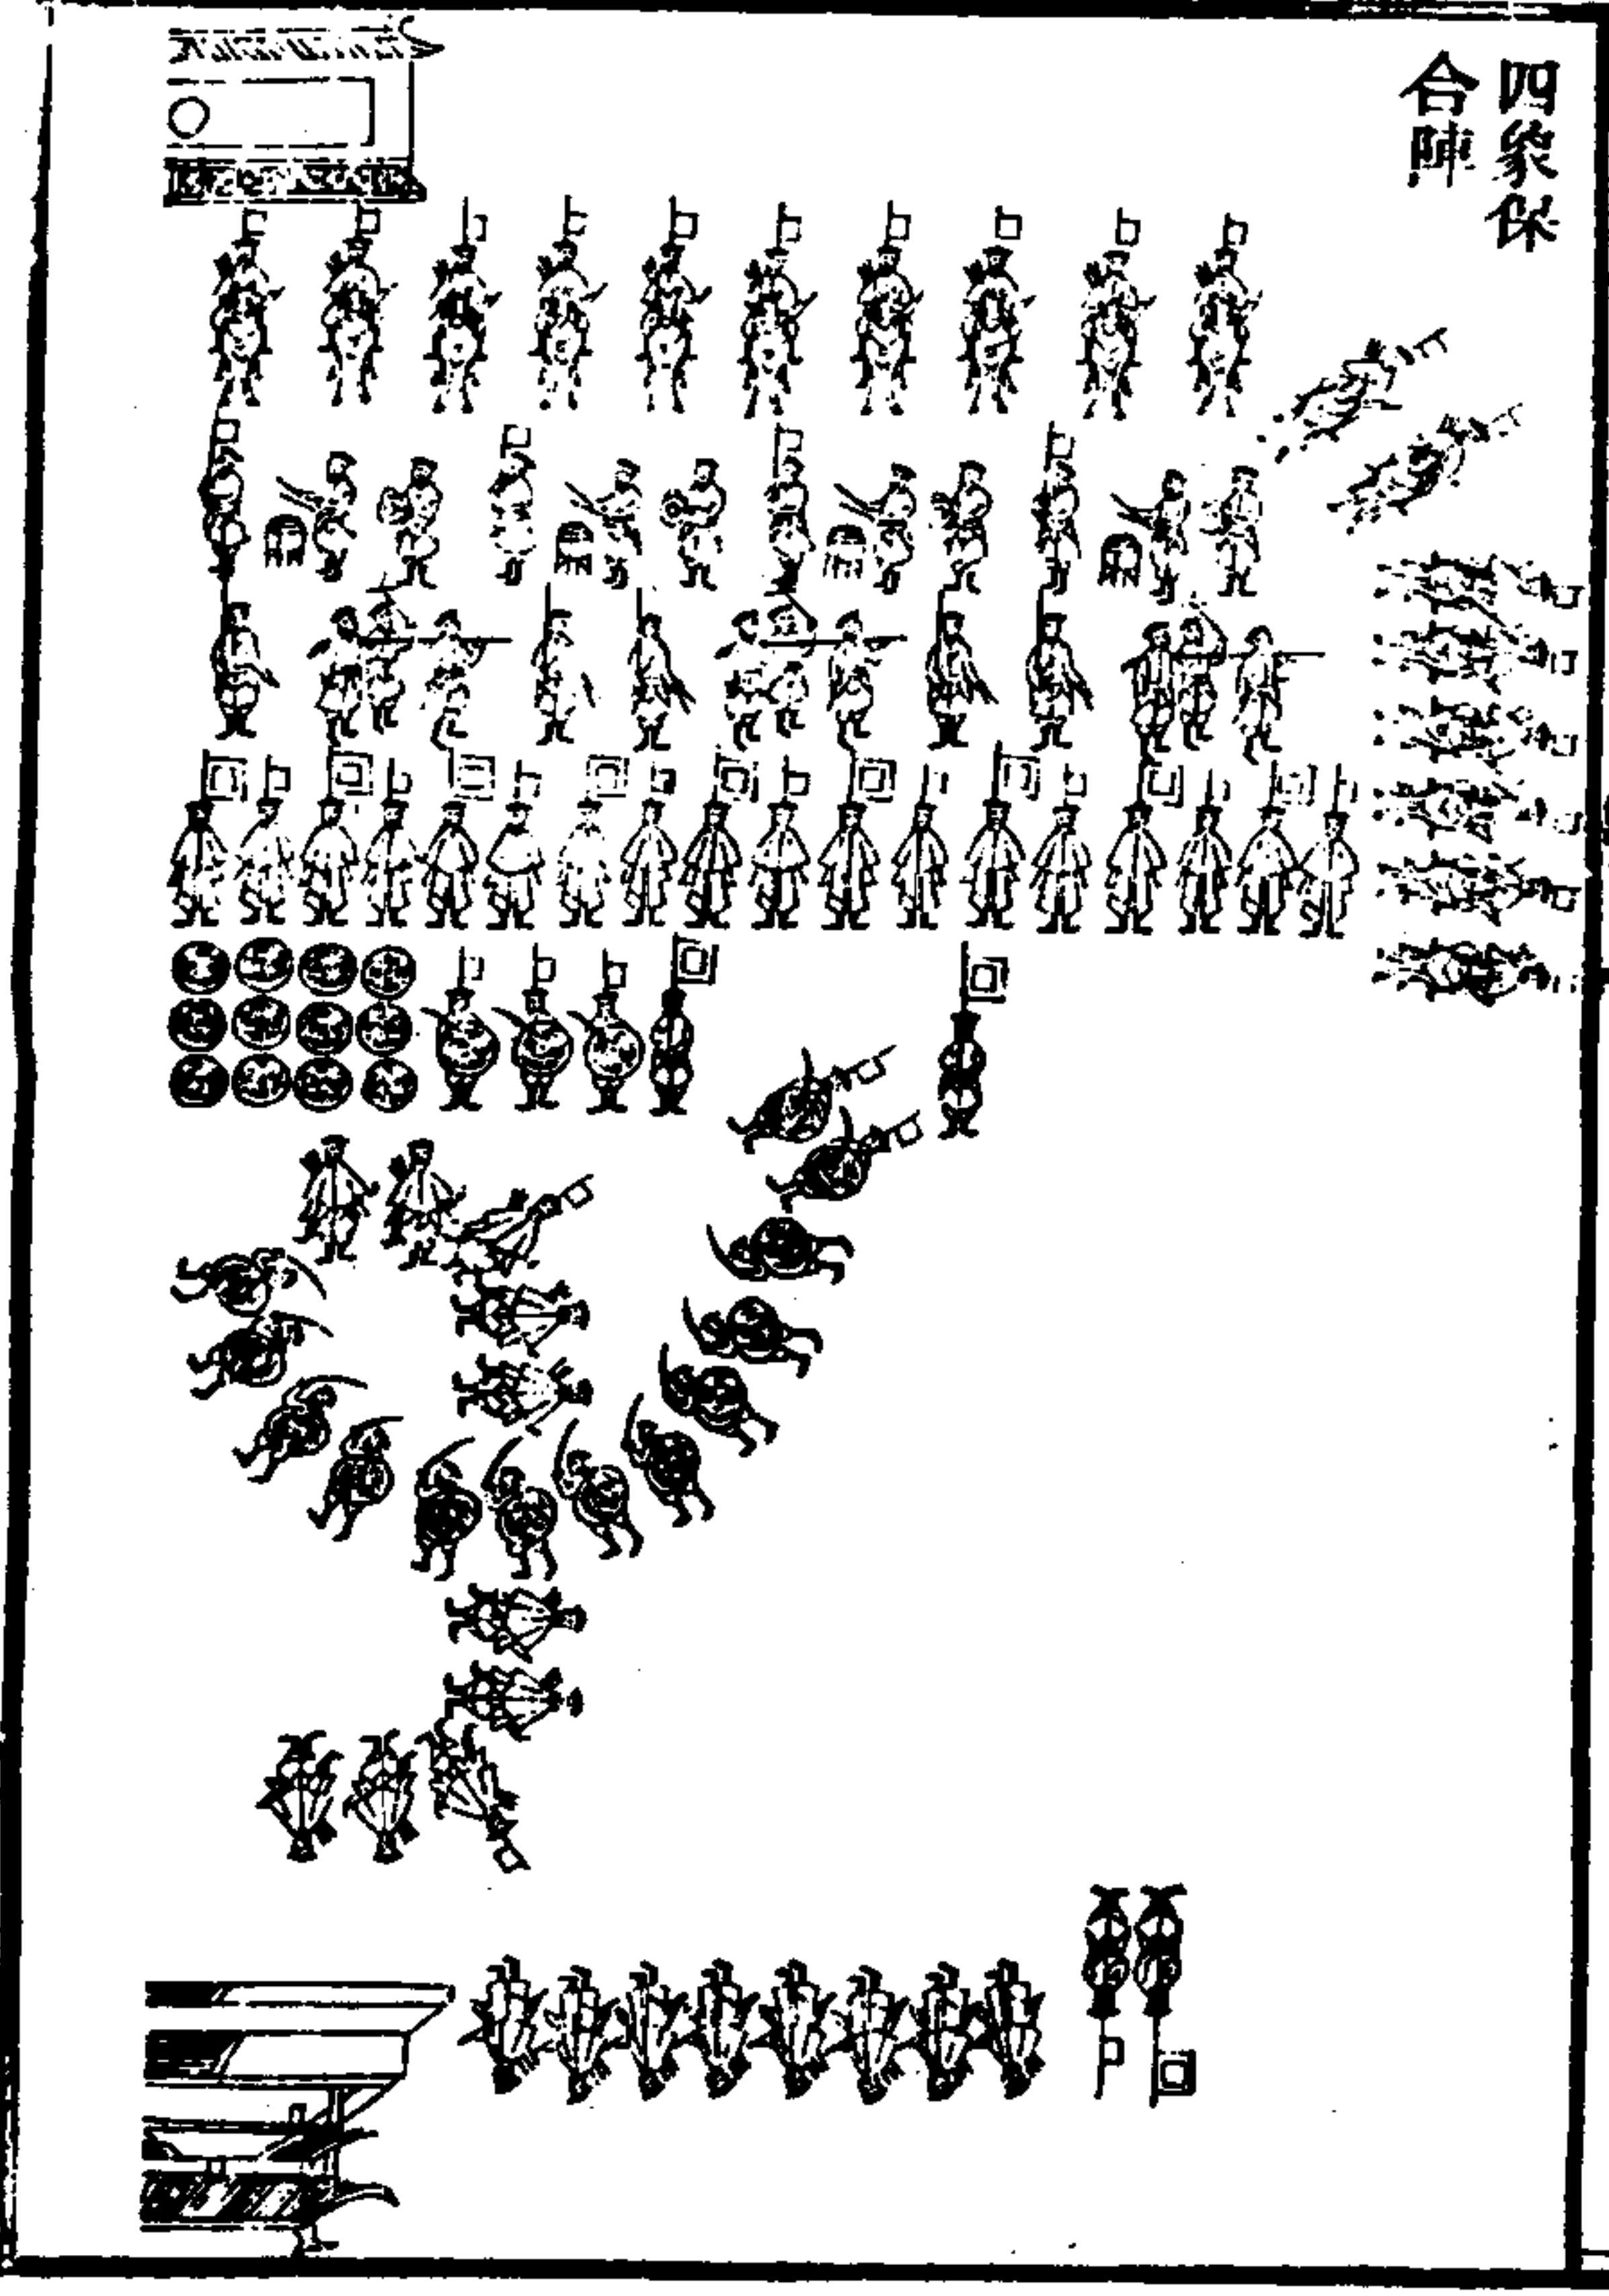 四象保
合陣